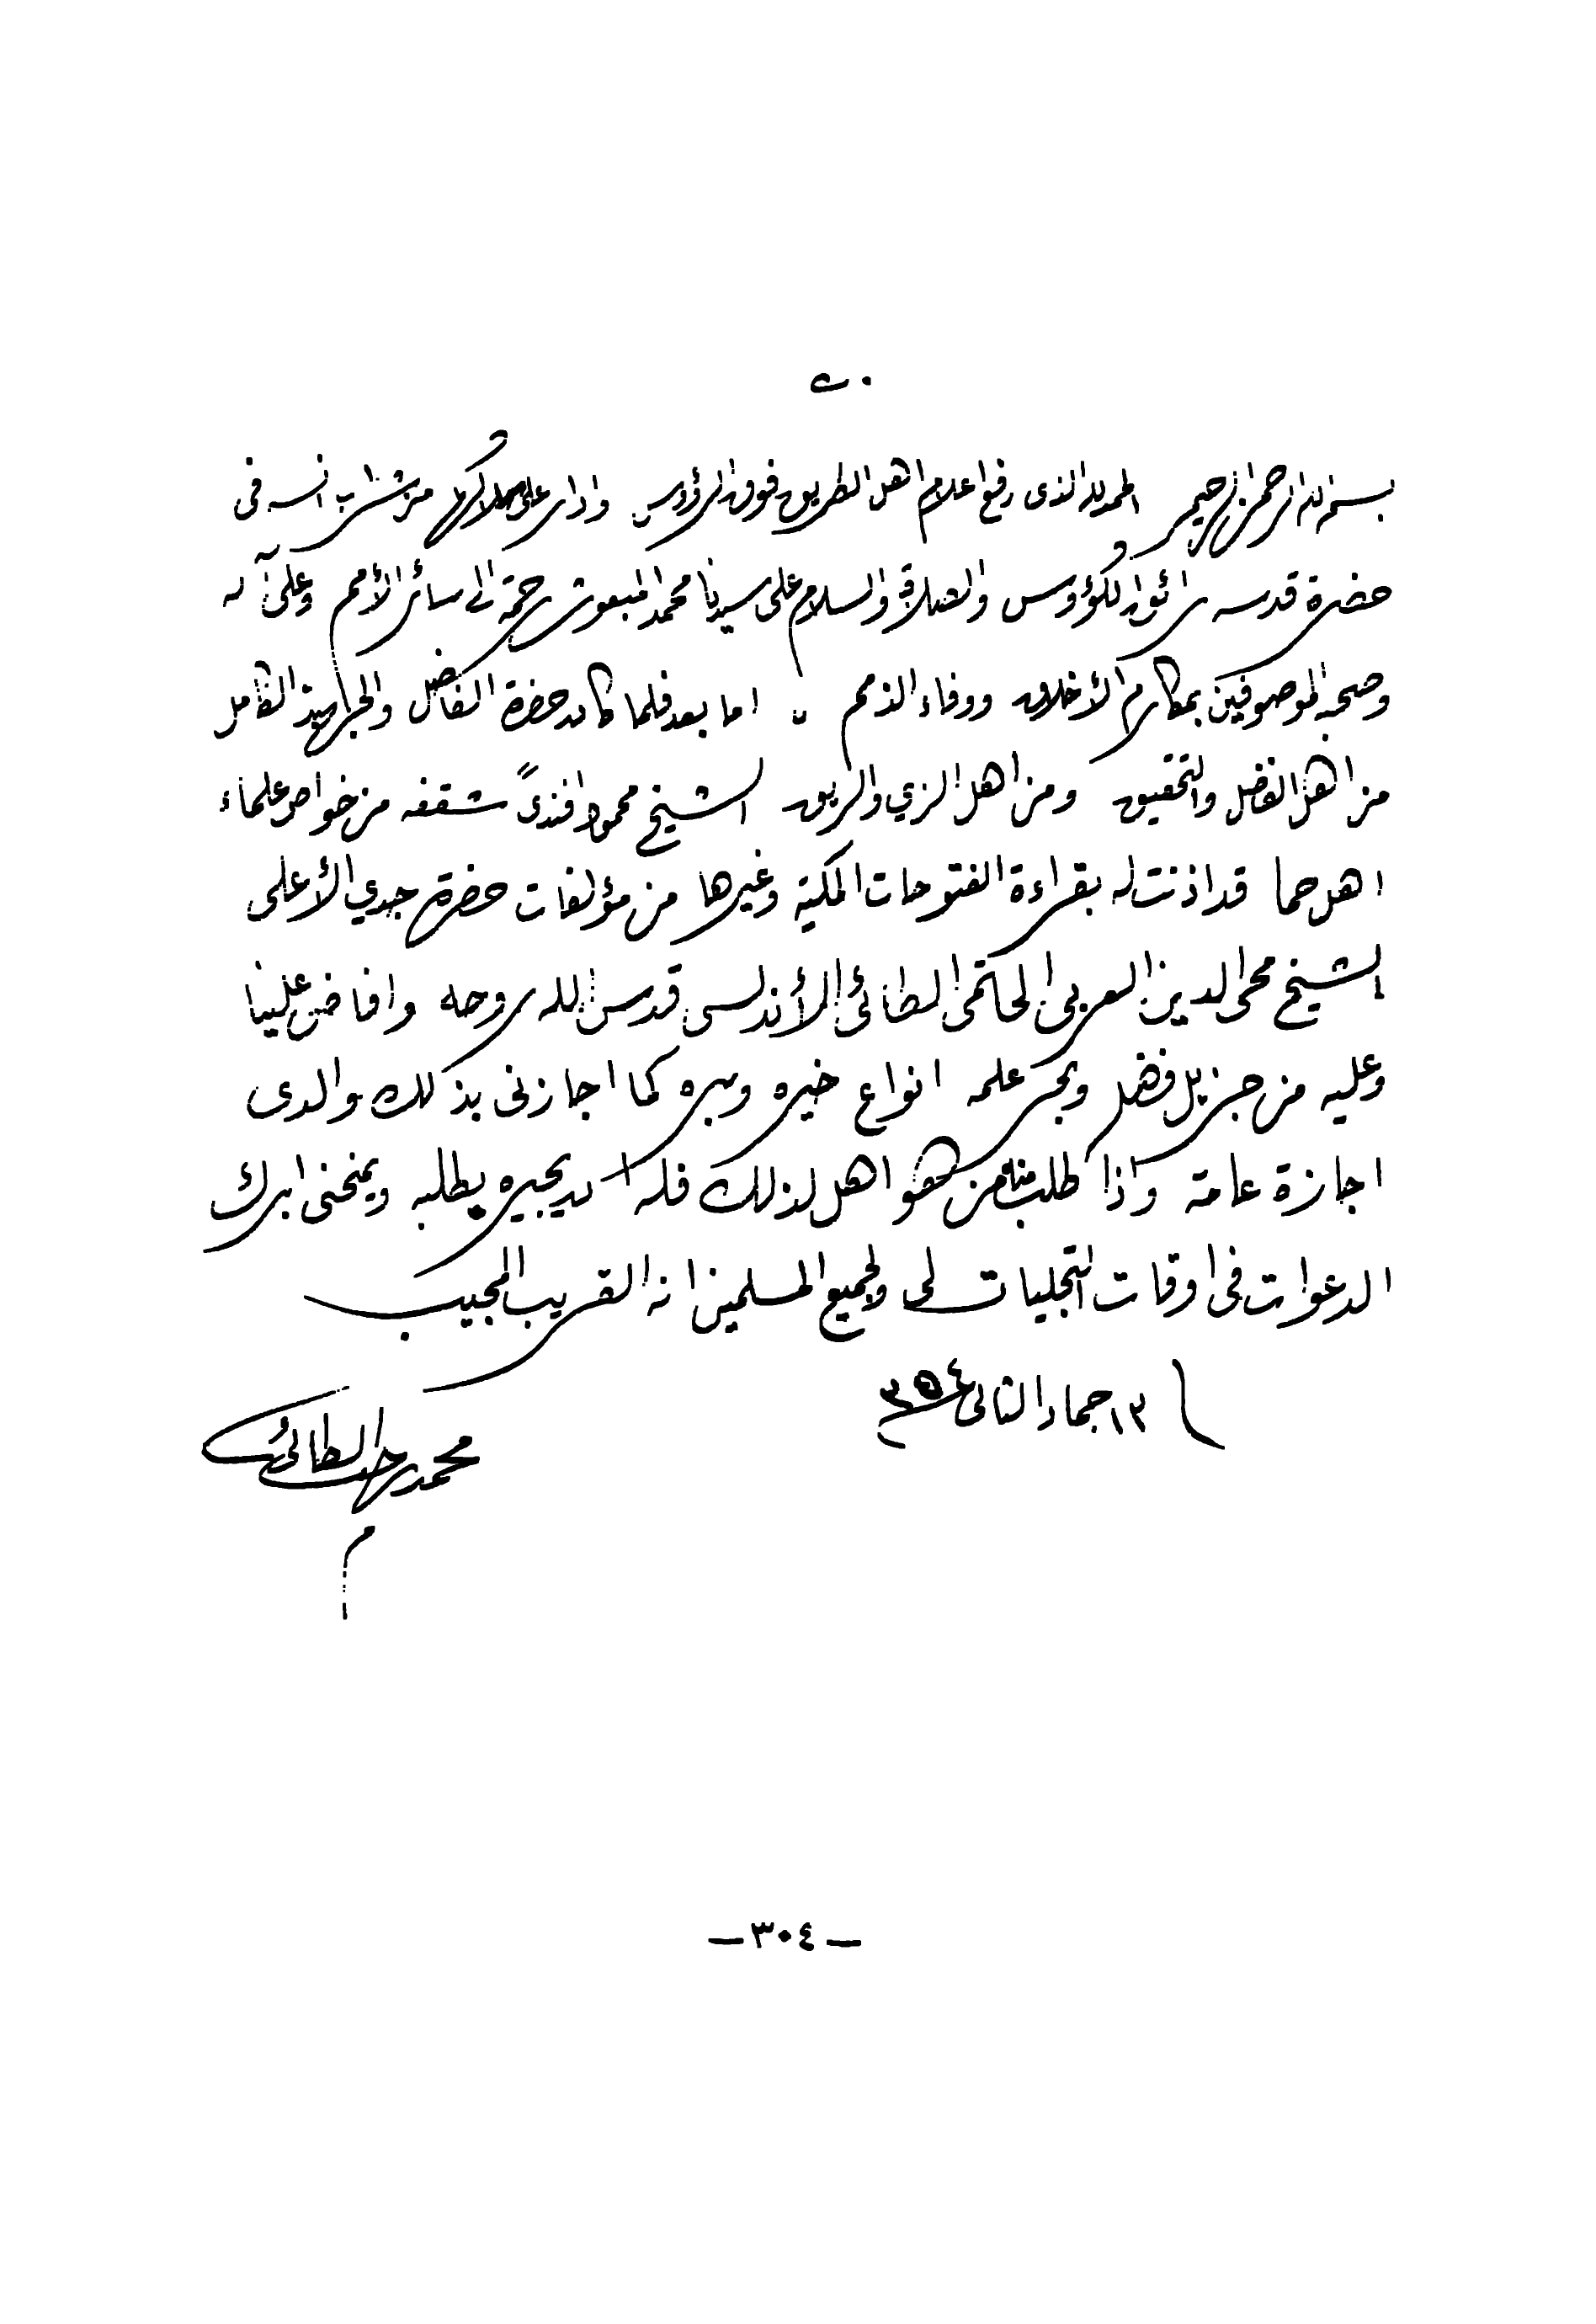 بسم الله الرحمن الرحيم الحمد لله الذى رفع اعلام اهل الطريق فوق الرؤوس وادار على من شراب انسه فى
حضرة قدسه رائق الكؤوس والصلاة والسلام على سيدنا محمد المبعوث رحمة الى سائر الأمم وعلى آله
وصحبه الموصوفين بمكارم الأخلاق ووفاء الذمم اما بعد فلما كان حضرة الفاضل والجهبذ الكامل
من اهل الفضل والتحقيق ومن اهل الشيخ محمود افندى شقفه من خواص علماء
اهل حما قد اذنت له بقراءة الفتوحات المكية وغيرها من مؤلفات حضرة جدي الأعلى
الشيخ محى الدين العربى الحاتمى الطائى الأندلسى قدس الله روحه وافاض علينا
وعليه من جزيل فضله وبحر علمه انواع خيره وبره كما اجازنى بذلك والدى
اجازة عامة واذا طلب منه من هو اهل لذلك فله ان يجيزه بطلبه ويمنحنى ابرك
الدعوات فى اوقات التجليات لى ولجميع المسلمين انه القريب المجيب
١٣ جماد الثانى ٣٥٤
محمد الطائى
م
— ٣٠٤ —